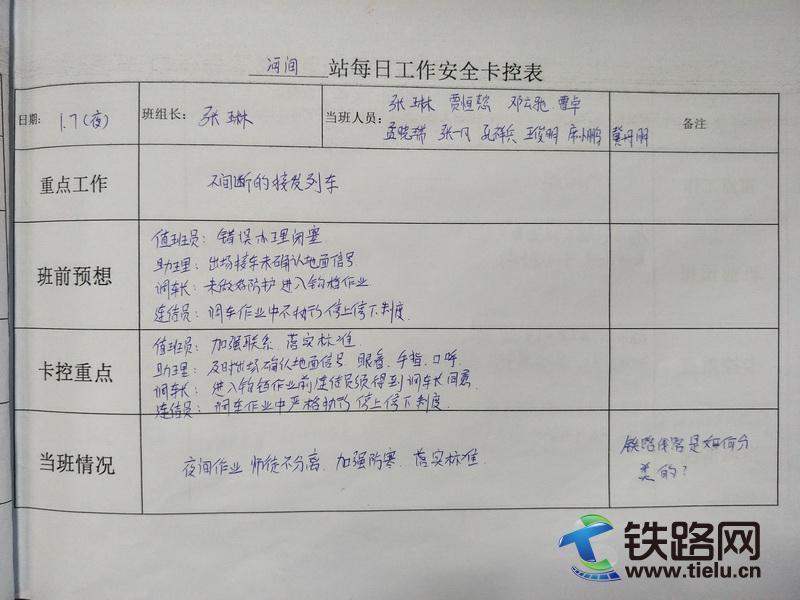 河间 站每日工作安全卡控表
日期: 1.7(夜) 班组长: 张琳 当班人员: 张琳 贾恒懿 邓云驰 曹卓
孟晓瑞 张一凡 孔祥兵 王俊明 鹏 龚丹朋
备注
重点工作 不间断的接发列车
班前预想
值班员: 错误办理闭塞
助理: 出场接车未确认地面信号
调车长: 未做好防护进入钩档作业
连结员: 调车作业中不执行停上停下制度.
卡控重点
值班员: 加强联系、落实标准.
助理: 及时出场确认地面信号 眼看、手指、口呼.
调车长: 进入钩档作业前连结员须得到调车长同意
连结员: 调车作业中严格执行停上停下制度.
当班情况 夜间作业 师徒不分离、加强防寒、落实标准.
铁路伤害是如何分
类的?
铁路网
www.tielu.cn